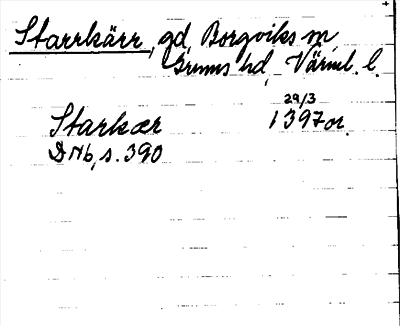 Starrkärr, gd, Borgviks sn
Grums hd, Värml. l.
29/3
Starkær 1397 or.
DNb, s. 390